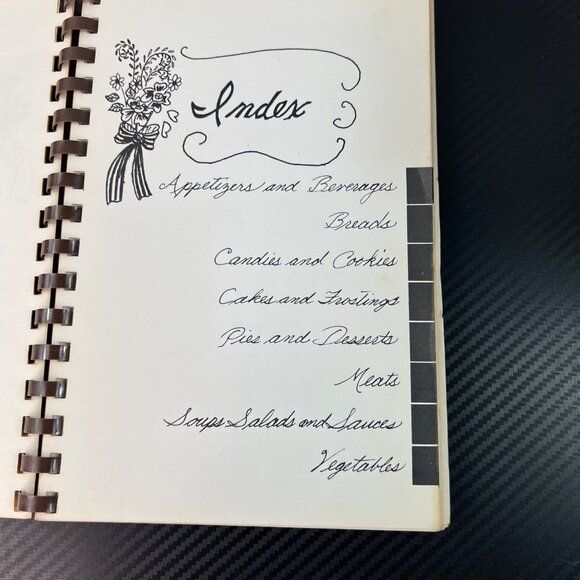 Index
Appetizers and Beverages
Breads
Candies and Cookies
Cakes and Frostings
Pies and Desserts
Meats
Soups Salads and Sauces
Vegetables